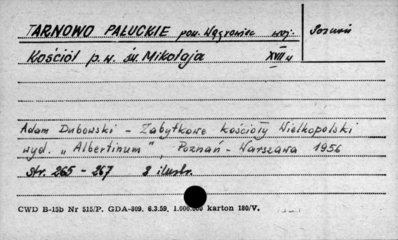 TARNOWO PAŁUCKIE pow. Wągrowiec woj. Poznań
Kościół p.w. św. Mikołaja XVII w
Adam Dubowski - Zabytkowe kościoły Wielkopolski
wyd. „Albertinum", Poznań - Warszawa 1956
str. 265 - 267 3 ilustr.
CWD B-15b Nr 515/P. GDA-809. 6.3.59. 1.000.000 karton 180/V.